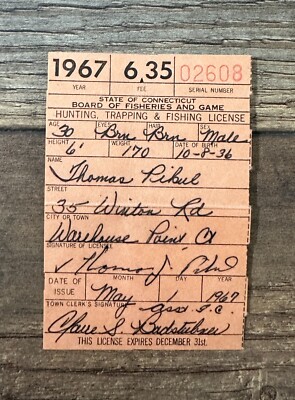 1967 6.35 02608
YEAR FEE SERIAL NUMBER
STATE OF CONNECTICUT
BOARD OF FISHERIES AND GAME
HUNTING, TRAPPING & FISHING LICENSE
AGE EYES HAIR SEX
30 Brn Brn Male
HEIGHT WEIGHT DATE OF BIRTH
6' 170 10-8-36
NAME
Thomas Pikul
STREET
35 Winton Rd
CITY OR TOWN
Warehouse Point Ct
SIGNATURE OF LICENSEE
Thomas J. Pikul
MONTH DAY YEAR
DATE OF ISSUE May 1 1967
TOWN CLERK'S SIGNATURE Ass't T.C.
Claire S. Badstubner
THIS LICENSE EXPIRES DECEMBER 31st.